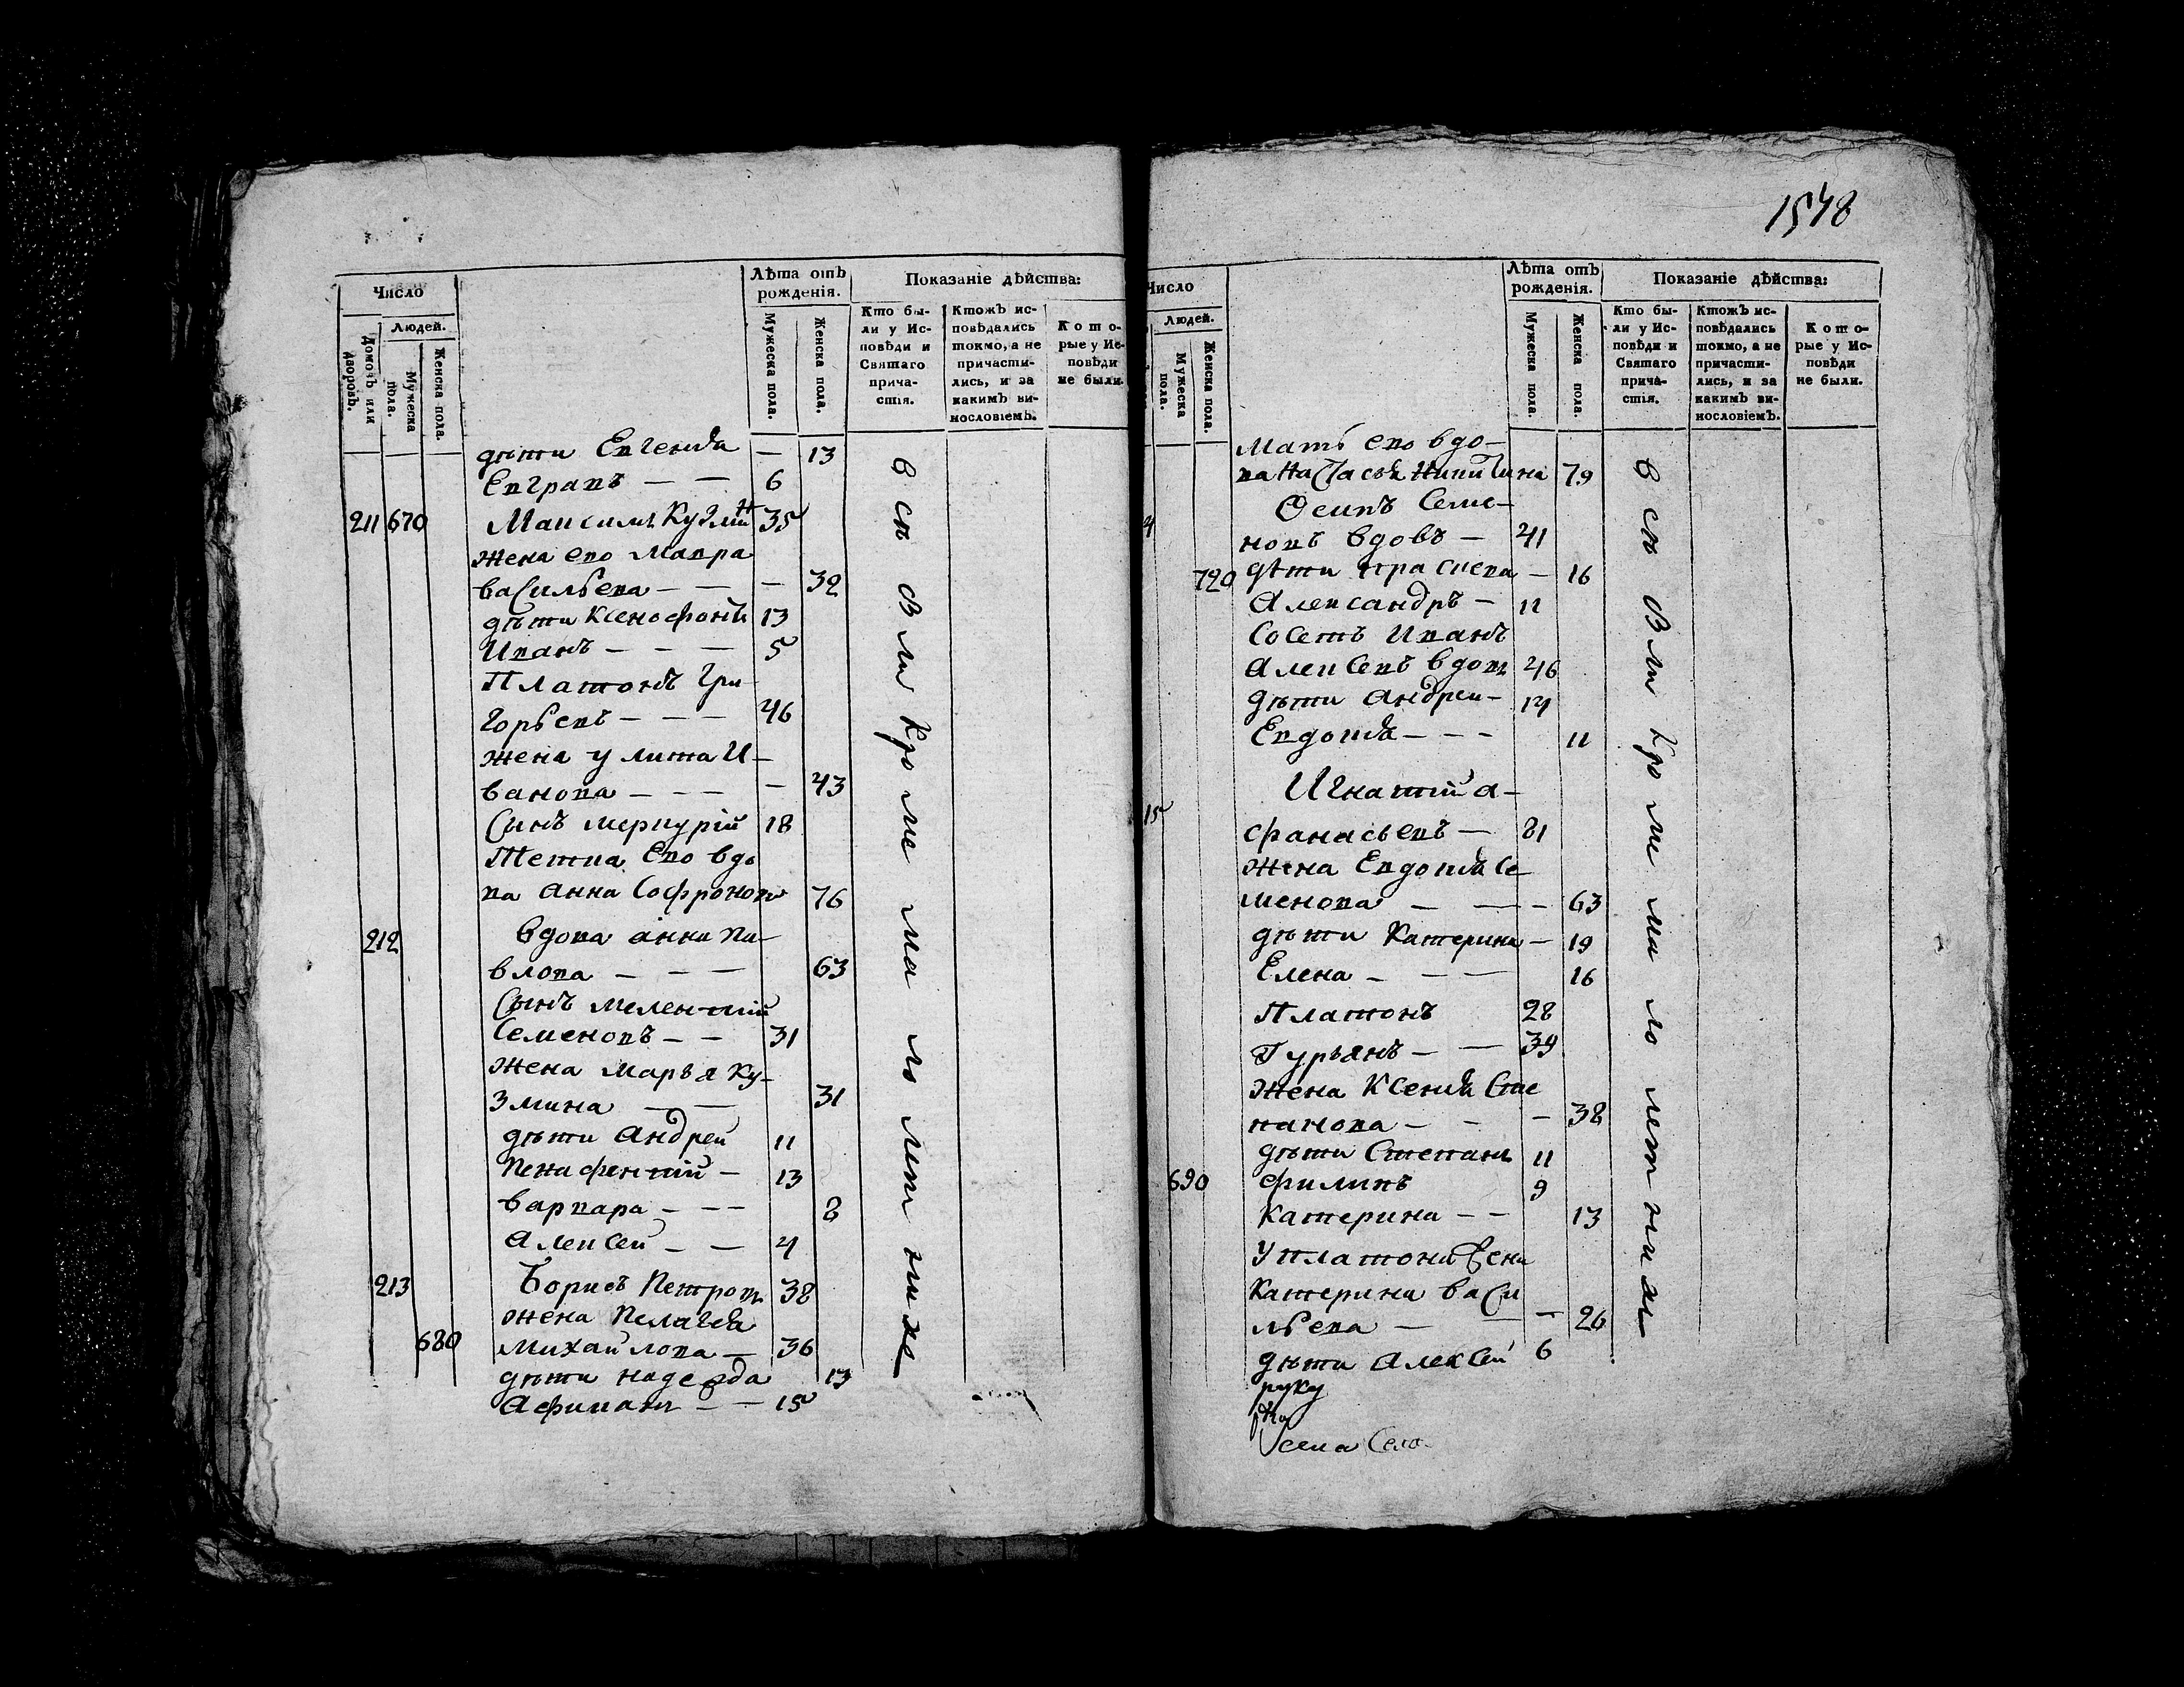 Число
Людей.
Домовъ или дворовъ.
Мужеска пола.
Женска пола.
Лѣта отъ рожденія.
Мужеска пола.
Женска пола.
Показаніе дѣйства:
Кто были у Исповѣди и Святаго причастія.
Ктожъ исповѣдались токмо, а не причастились, и за какимъ винословіемъ.
Которые у Исповѣди не были.
дѣти Евгенія — 13
Евграпъ — — 6
211 670 Максимъ Кузмин 35
жена его Мавра
васильева — — — 32
дѣти Ксенофонтъ 13
Иванъ — — — 5
Платонъ Гри-
горьевъ — — — 46
жена улита И-
ванова — — — — 43
Сынъ меркурій 18
Тетка Его вдо
ва Анна Софронова 76
212 вдова анна Па-
влова — — — 63
Сынъ мелентій
Семеновъ — — 31
жена Марья Ку-
змина — — 31
дѣти Андрей 11
Ксенофентій — 13
варвара — — — 8
Алексей — — 4
213 Борисъ Петровъ 38
жена Пелагея
680 михайлова — 36
дѣти надежда 13
Афинаъ — — 15
всѣ были кроме малолетнихъ
1548
Число
Людей.
Мужеска пола.
Женска пола.
Лѣта отъ рожденія.
Мужеска пола.
Женска пола.
Показаніе дѣйства:
Кто были у Исповѣди и Святаго причастія.
Ктожъ исповѣдались токмо, а не причастились, и за какимъ винословіемъ.
Которые у Исповѣди не были.
Мать его вдо-
ва Настасья Никитина 79
4 Осипъ Семе-
новъ вдовъ — 41
720 дѣти Праскева — 16
Александръ — 11
Соседъ Иванъ
Алексевъ вдовъ 46
дѣти Андреи — 14
Евдокия — — — 11
15 Игнатій А-
фанасьевъ — 81
жена Евдокия Се-
менова — — — 63
дѣти Катерина — 19
Елена — — — 16
Платонъ 28
Гурьянъ — — 39
жена Ксения Сте
панова — — — 38
дѣти Степанъ 11
690 Филипъ 9
Катерина — — 13
У платона жена
Катерина Васи
льева — — — 26
дѣти Алексей 6
руку
всѣ были кроме малолетнихъ